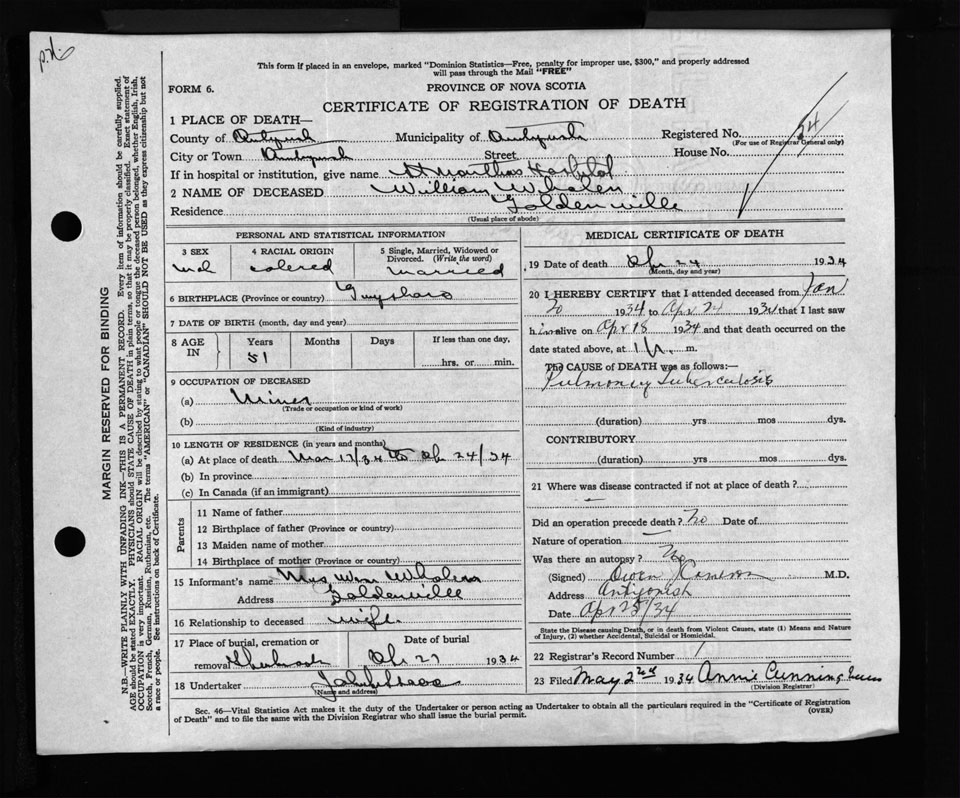 This form if placed in an envelope, marked "Dominion Statistics—Free, penalty for improper use, $300," and properly addressed
will pass through the Mail "FREE"
FORM 6.
PROVINCE OF NOVA SCOTIA
CERTIFICATE OF REGISTRATION OF DEATH
1 PLACE OF DEATH—
County of Antigonish Municipality of Antigonish Registered No. 34
(For use of Registrar General only)
City or Town Antigonish Street House No.
If in hospital or institution, give name St Marthas Hospital
2 NAME OF DECEASED William Whalen
Residence Goldenville
(Usual place of abode)
PERSONAL AND STATISTICAL INFORMATION
3 SEX 4 RACIAL ORIGIN 5 Single, Married, Widowed or
Divorced. (Write the word)
colored married
6 BIRTHPLACE (Province or country) Guysboro
7 DATE OF BIRTH (month, day and year)
8 AGE IN Years Months Days If less than one day,
51 hrs. or min.
9 OCCUPATION OF DECEASED
(a) Miner
(Trade or occupation or kind of work)
(b)
(Kind of industry)
10 LENGTH OF RESIDENCE (in years and months)
(a) At place of death Mar 17/34 to Apr 24/34
(b) In province
(c) In Canada (if an immigrant)
Parents
11 Name of father
12 Birthplace of father (Province or country)
13 Maiden name of mother
14 Birthplace of mother (Province or country)
15 Informant's name Mrs Wm Whalen
Address Goldenville
16 Relationship to deceased wife
17 Place of burial, cremation or Date of burial
removal Sherbrooke Apr 27 1934
18 Undertaker
(Name and address)
MEDICAL CERTIFICATE OF DEATH
19 Date of death Apr 24 1934
(Month, day and year)
20 I HEREBY CERTIFY that I attended deceased from Jan
1934 to Apr 24 1934 that I last saw
him alive on Apr 18 1934 and that death occurred on the
date stated above, at m.
The CAUSE of DEATH was as follows:—
Pulmonary Tuberculosis
(duration) yrs mos dys.
CONTRIBUTORY
(duration) yrs mos dys.
21 Where was disease contracted if not at place of death?
Did an operation precede death? No Date of
Nature of operation
Was there an autopsy? No
(Signed) Owen Cameron M.D.
Address Antigonish
Date Apr 25/34
State the Disease causing Death, or in death from Violent Causes, state (1) Means and Nature
of Injury, (2) whether Accidental, Suicidal or Homicidal.
22 Registrar's Record Number 1
23 Filed May 2nd 1934 Annie Cunningham
(Division Registrar)
Sec. 46—Vital Statistics Act makes it the duty of the Undertaker or person acting as Undertaker to obtain all the particulars required in the "Certificate of Registration
of Death" and to file the same with the Division Registrar who shall issue the burial permit.
(OVER)
MARGIN RESERVED FOR BINDING
N.B.—WRITE PLAINLY WITH UNFADING INK—THIS IS A PERMANENT RECORD. Every item of information should be carefully supplied.
AGE should be stated EXACTLY. PHYSICIANS should STATE CAUSE OF DEATH in plain terms, so that it may be properly classified. Exact statement of
OCCUPATION is very important. RACIAL ORIGIN will be described by stating to what people or tongue the deceased person belonged, whether English, Irish,
Scotch, French, German, Russian, Ruthenian, etc. The terms "AMERICAN" or "CANADIAN" SHOULD NOT BE USED as they express citizenship but not
a race or people. See instructions on back of Certificate.